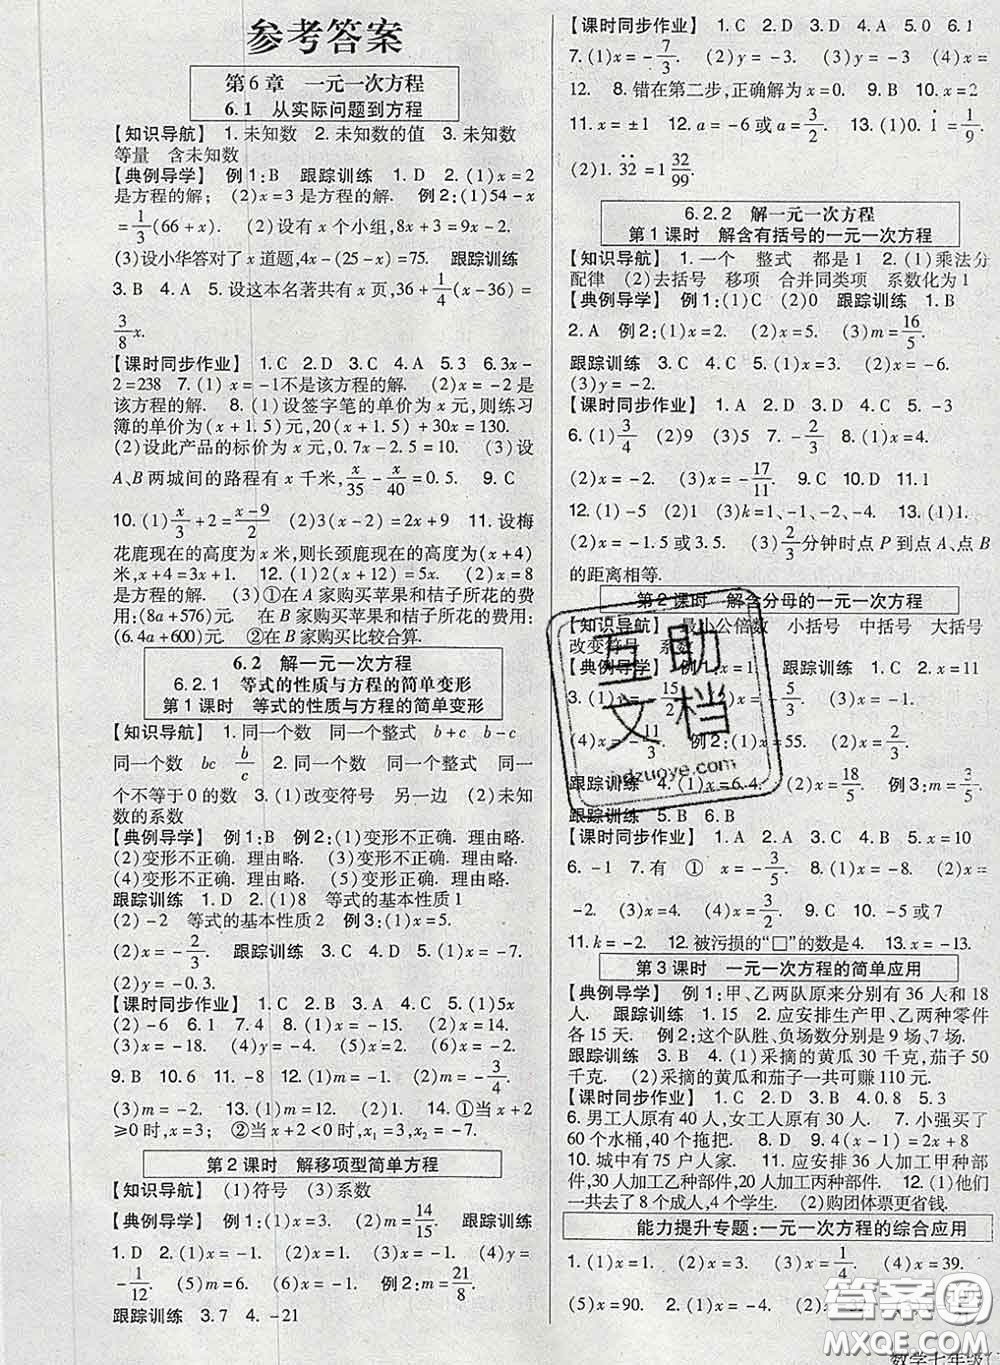 参考答案
第6章 一元一次方程
6.1 从实际问题到方程
【知识导航】 1. 未知数 2. 未知数的值 3. 未知数
等量 含未知数
【典例导学】 例1:B 跟踪训练 1. D 2. (1)x=2
是方程的解; (2)x=3 是方程的解. 例2:(1)54-x
=1/3(66+x). (2)设有 x 个小组, 8x+3=9x-2.
(3)设小华答对了 x 道题, 4x-(25-x)=75. 跟踪训练
3. B 4. A 5. 设这本名著共有 x 页, 36+1/4(x-36)=
3/8x.
【课时同步作业】 1. C 2. D 3. C 4. A 5. 3 6. 3x-
2=238 7. (1) x=-1不是该方程的解. (2)x=-2 是
该方程的解. 8. (1)设签字笔的单价为 x 元, 则练习
簿的单价为(x+1.5)元, 20(x+1.5)+30x=130.
(2)设此产品的标价为 x 元, 0.7x-2.5=10. (3)设
A、B 两城间的路程有 x 千米, x/35-x/40=0.5. 9. C
10. (1)x/3+2=(x-9)/2 (2)3(x-2)=2x+9 11. 设梅
花鹿现在的高度为 x 米, 则长颈鹿现在的高度为(x+4)
米, x+4=3x. 12. (1)2(x+12)=5x. (2)x=8
是方程的解. (3)①在 A 家购买苹果和桔子所花的费
用:(8a+576)元. 在 B 家购买苹果和桔子所花的费用:
(6.4a+600)元. ②在 B 家购买比较合算.
6.2 解一元一次方程
6.2.1 等式的性质与方程的简单变形
第1课时 等式的性质与方程的简单变形
【知识导航】 1. 同一个数 同一个整式 b+c b-c
同一个数 bc b/c 2. 同一个数 同一个整式 同一
个不等于 0 的数 3. (1)改变符号 另一边 (2)未知
数的系数
【典例导学】 例1:B 例2:(1)变形不正确. 理由略.
(2)变形不正确. 理由略. (3)变形不正确. 理由略.
(4)变形不正确. 理由略.
跟踪训练 1. D 2. (1)8 等式的基本性质1
(2)-2 等式的基本性质2 例3:(1)x=5.
(2)x=-2/3. 跟踪训练 3. C 4. (1)x=-7.
(2)y=-0.3.
【课时同步作业】 1. C 2. C 3. A 4. B 5. (1)5x
(2)-6 6. 1 7. 4 8. (1)x=-15. (2)x=14.
(3)x=-18. (4)y=-4. (5)x=-2. (6)x=-1.
9. B 10. 6 11. -8 12. (1)m=-1. (2)m=-3/4.
(3)m=-2. 13. (1)m=2. (2)m=4. 14. ①当 x+2
≥0 时, x=3; ②当 x+2<0 时, x=-7.
第2课时 解移项型简单方程
【知识导航】 (1)符号 (3)系数
【典例导学】 例1:(1)x=3. (2)m=14/15. 跟踪训练
1. D 2. (1)x=-2. (2)x=1. (3)x=-2. (4)y=
-1/12. (5)m=6. (6)x=-1. 例2:m=21/8.
跟踪训练 3. 7 4. -21
【课时同步作业】 1. C 2. D 3. D 4. A 5. 0 6. 1
7. (1)x=-7/3. (2)y=-3. (3)y=-3. (4)x=
12. 8. 错在第二步, 正确解为 x=0. 9. B 10. x=2
11. x=±1 12. a=-6 或 a=3/2. 13. (1)0.1̇=1/9.
(2)1.3̇2̇=1 32/99.
6.2.2 解一元一次方程
第1课时 解含有括号的一元一次方程
【知识导航】 1. 一个 整式 都是1 2. (1)乘法分
配律 (2)去括号 移项 合并同类项 系数化为1
【典例导学】 例1:(1)C (2)0 跟踪训练 1. B
2. A 例2:(1)x=2. (2)x=5. (3)m=16/5.
跟踪训练 3. C 4. C 5. (1)x=2. (2)x=-6.
(3)y=-2.
【课时同步作业】 1. A 2. D 3. A 4. C 5. -3
6. (1)3/4 (2)9 (3)5 7. -2 8. (1)x=4.
(2)x=-2. (3)m=-17/11. 9. C 10. D 11. 1
12. (1)-5 (2)1 (3)k=1、-1、-2、-4. 13. (1)1.
(2)x=-1.5 或 3.5. (3)2/3分钟时点 P 到点 A、点 B
的距离相等.
第2课时 解含分母的一元一次方程
【知识导航】 最小公倍数 小括号 中括号 大括号
改变符号 系数
【典例导学】 例1:x=1. 跟踪训练 1. C 2. x=11
3. (1)x=-15/2. (2)x=-3. (3)x=-5/3.
(4)x=-11/3. 例2:(1)x=55. (2)x=2/3.
跟踪训练 4. (1)x=6.4. (2)x=18/5. 例3:B
跟踪训练 5. B 6. B
【课时同步作业】 1. A 2. A 3. C 4. B 5. x=10
6. -1 7. 有 ① x=-3/5 8. (1)x=1. (2)x=
-2. (3)x=4. (4)x=3/2. 9. C 10. -5 或 7
11. k=-2. 12. 被污损的“□”的数是 4. 13. x=-13.
第3课时 一元一次方程的简单应用
【典例导学】 例1:甲、乙两队原来分别有 36 人和 18
人. 跟踪训练 1. 15 2. 应安排生产甲、乙两种零件
各 15 天. 例2:这个队胜、负场数分别是 9, 7 场.
跟踪训练 3. B 4. (1)采摘的黄瓜30 千克, 茄子50
千克. (2)采摘的黄瓜和茄子一共可赚 110 元.
【课时同步作业】 1. C 2. D 3. B 4. 0.8 5. 3
6. 男工人原有 40 人, 女工人原有 30 人. 7. 小强买了
60 个水桶, 40 个拖把. 8. D 9. 4(x-1)=2x+8
10. 城中有 75 户人家. 11. 应安排 36 人加工甲种部
件, 30 人加工乙种部件, 20 人加工丙种部件. 12. (1)他们
一共去了 8 个成人, 4 个学生. (2)购团体票更省钱.
能力提升专题:一元一次方程的综合应用
1. (1)x=1. (2)x=3. (3)x=1/4. (4)x=39.
(5)x=90. 2. (1)x=-4. (2)x=
互助
文档
答案圈
MXQE.COM
数学七年级